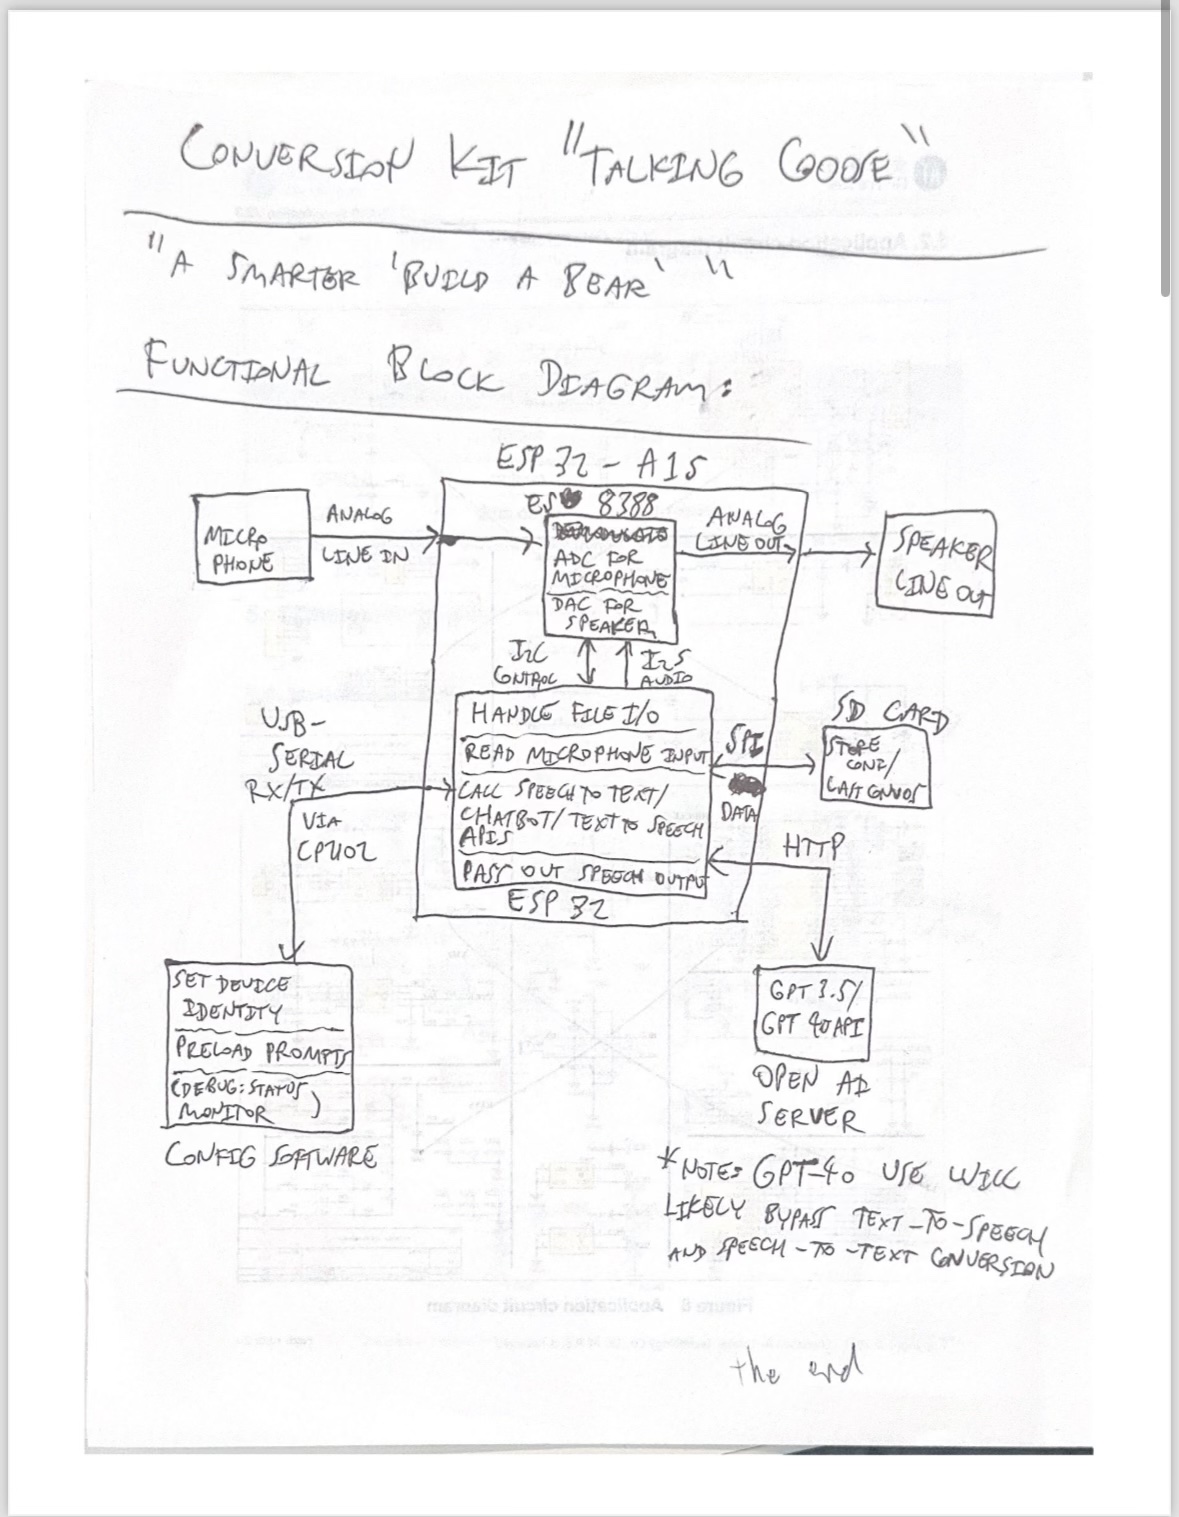 CONVERSION KIT "TALKING GOOSE"
"A SMARTER 'BUILD A BEAR' "
FUNCTIONAL BLOCK DIAGRAM:
ESP 32 - A1S
ES 8388
MICRO
PHONE
ANALOG
LINE IN
ADC FOR
MICROPHONE
DAC FOR
SPEAKER
ANALOG
LINE OUT
SPEAKER
LINE OUT
I2C
CONTROL
I2S
AUDIO
HANDLE FILE I/O
READ MICROPHONE INPUT
CALL SPEECH TO TEXT/
CHATBOT/ TEXT TO SPEECH
APIS
PASS OUT SPEECH OUTPUT
ESP 32
USB-
SERIAL
RX/TX
VIA
CP2102
SPI
DATA
SD CARD
STORE
CONF/
LAST CONVOS
HTTP
SET DEVICE
IDENTITY
PRELOAD PROMPTS
(DEBUG: STATUS
MONITOR )
CONFIG SOFTWARE
GPT 3.5/
GPT 4o API
OPEN AI
SERVER
*NOTE: GPT-4o USE WILL
LIKELY BYPASS TEXT-TO-SPEECH
AND SPEECH-TO-TEXT CONVERSION
Figure 6 Application circuit diagram
the end